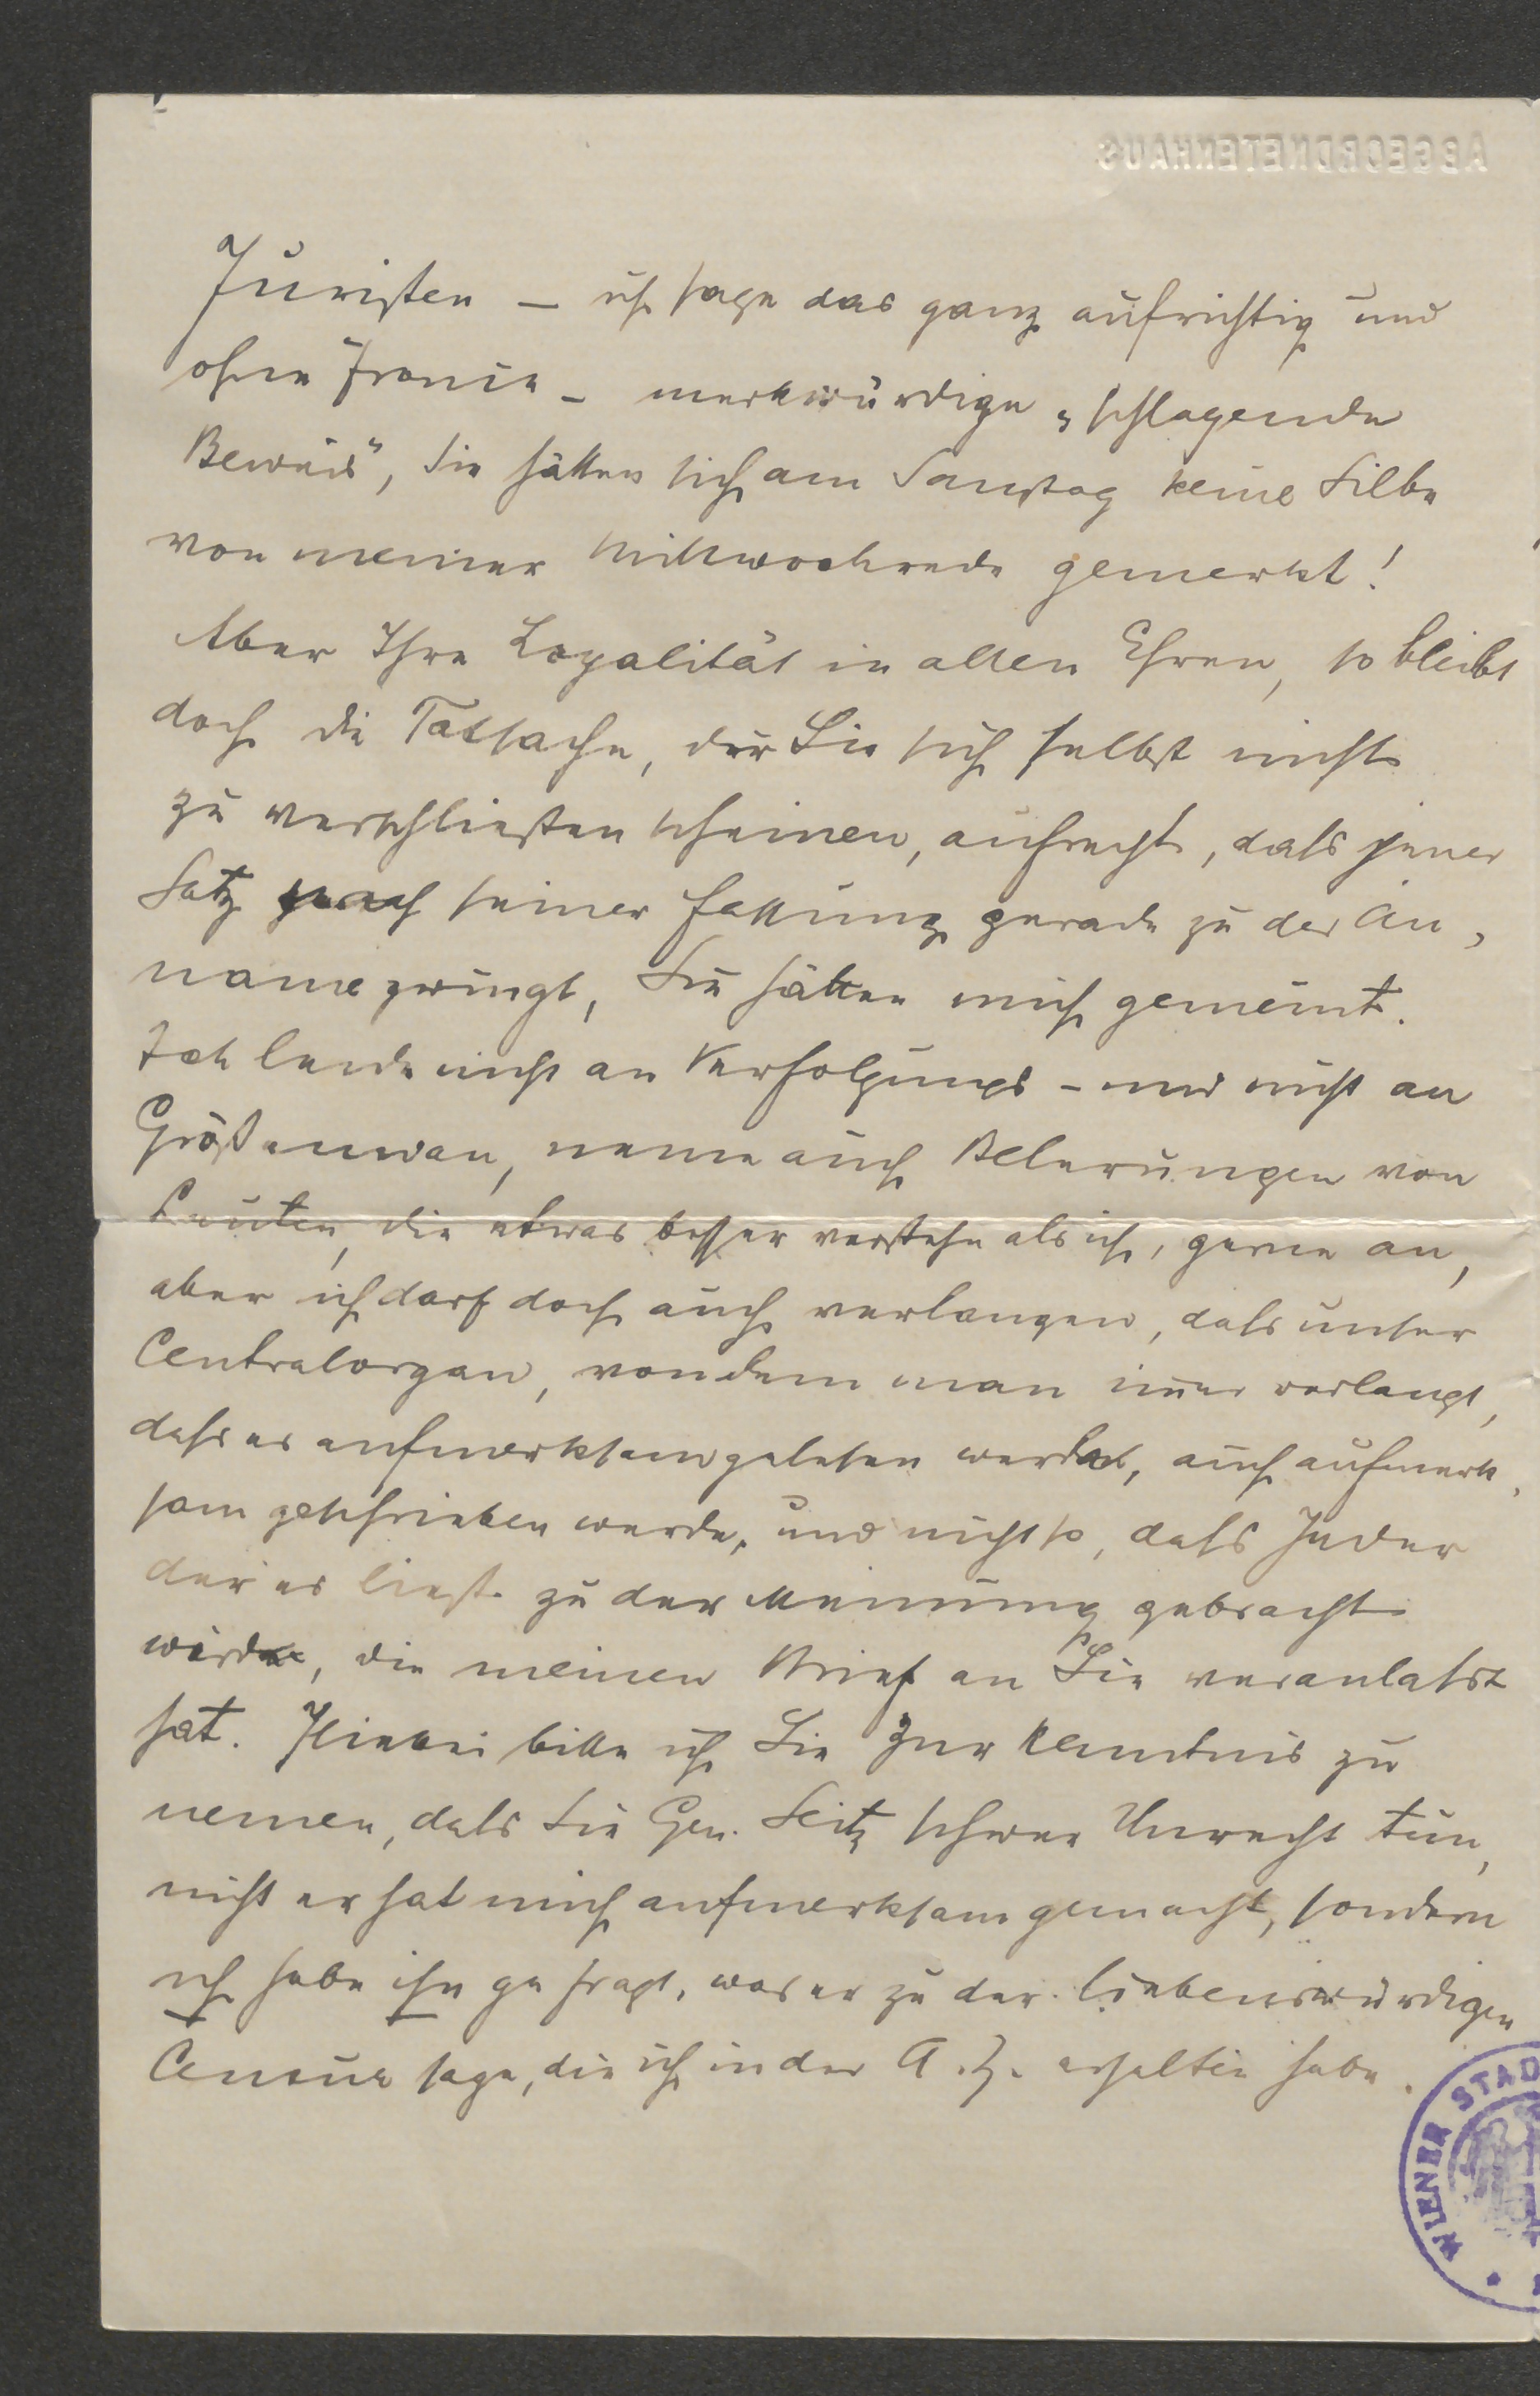 ABGEORDNETENHAUS
Juristen – ich sage das ganz aufrichtig und
ohne Ironie – merkwürdige „schlagende
Beweis“, Sie hätten sich am Samstag keine Silbe
von meiner Mittwochrede gemerkt!
Aber Ihre Loyalität in allen Ehren, so bleibt
doch die Tatsache, der Sie sich selbst nicht
zu verschließen scheinen, aufrecht, dass jener
Satz nach seiner Fassung gerade zu der An-
name zwingt, Sie hätten mich gemeint.
Ich leide nicht an Verfolgungs- und nicht an
Größenwan, neme auch Belerungen von
Leuten, die etwas besser verstehn als ich, gerne an,
aber ich darf doch auch verlangen, dass unser
Centralorgan, von dem man immer verlangt,
dass es aufmerksam gelesen werde, auch aufmerk-
sam geschrieben werde, und nicht so, dass Jeder
der es liest zu der Meinung gebracht
wird, die meinen Brief an Sie veranlasst
hat. Hiebei bitte ich Sie zur Kenntnis zu
nemen, dass Sie Gen. Seitz schwer Unrecht tun,
nicht er hat mich aufmerksam gemacht, sondern
ich habe ihn gefragt, was er zu der liebenswürdigen
Censur sage, die ich in der A. Z. erhalten habe.
WIENER STAD